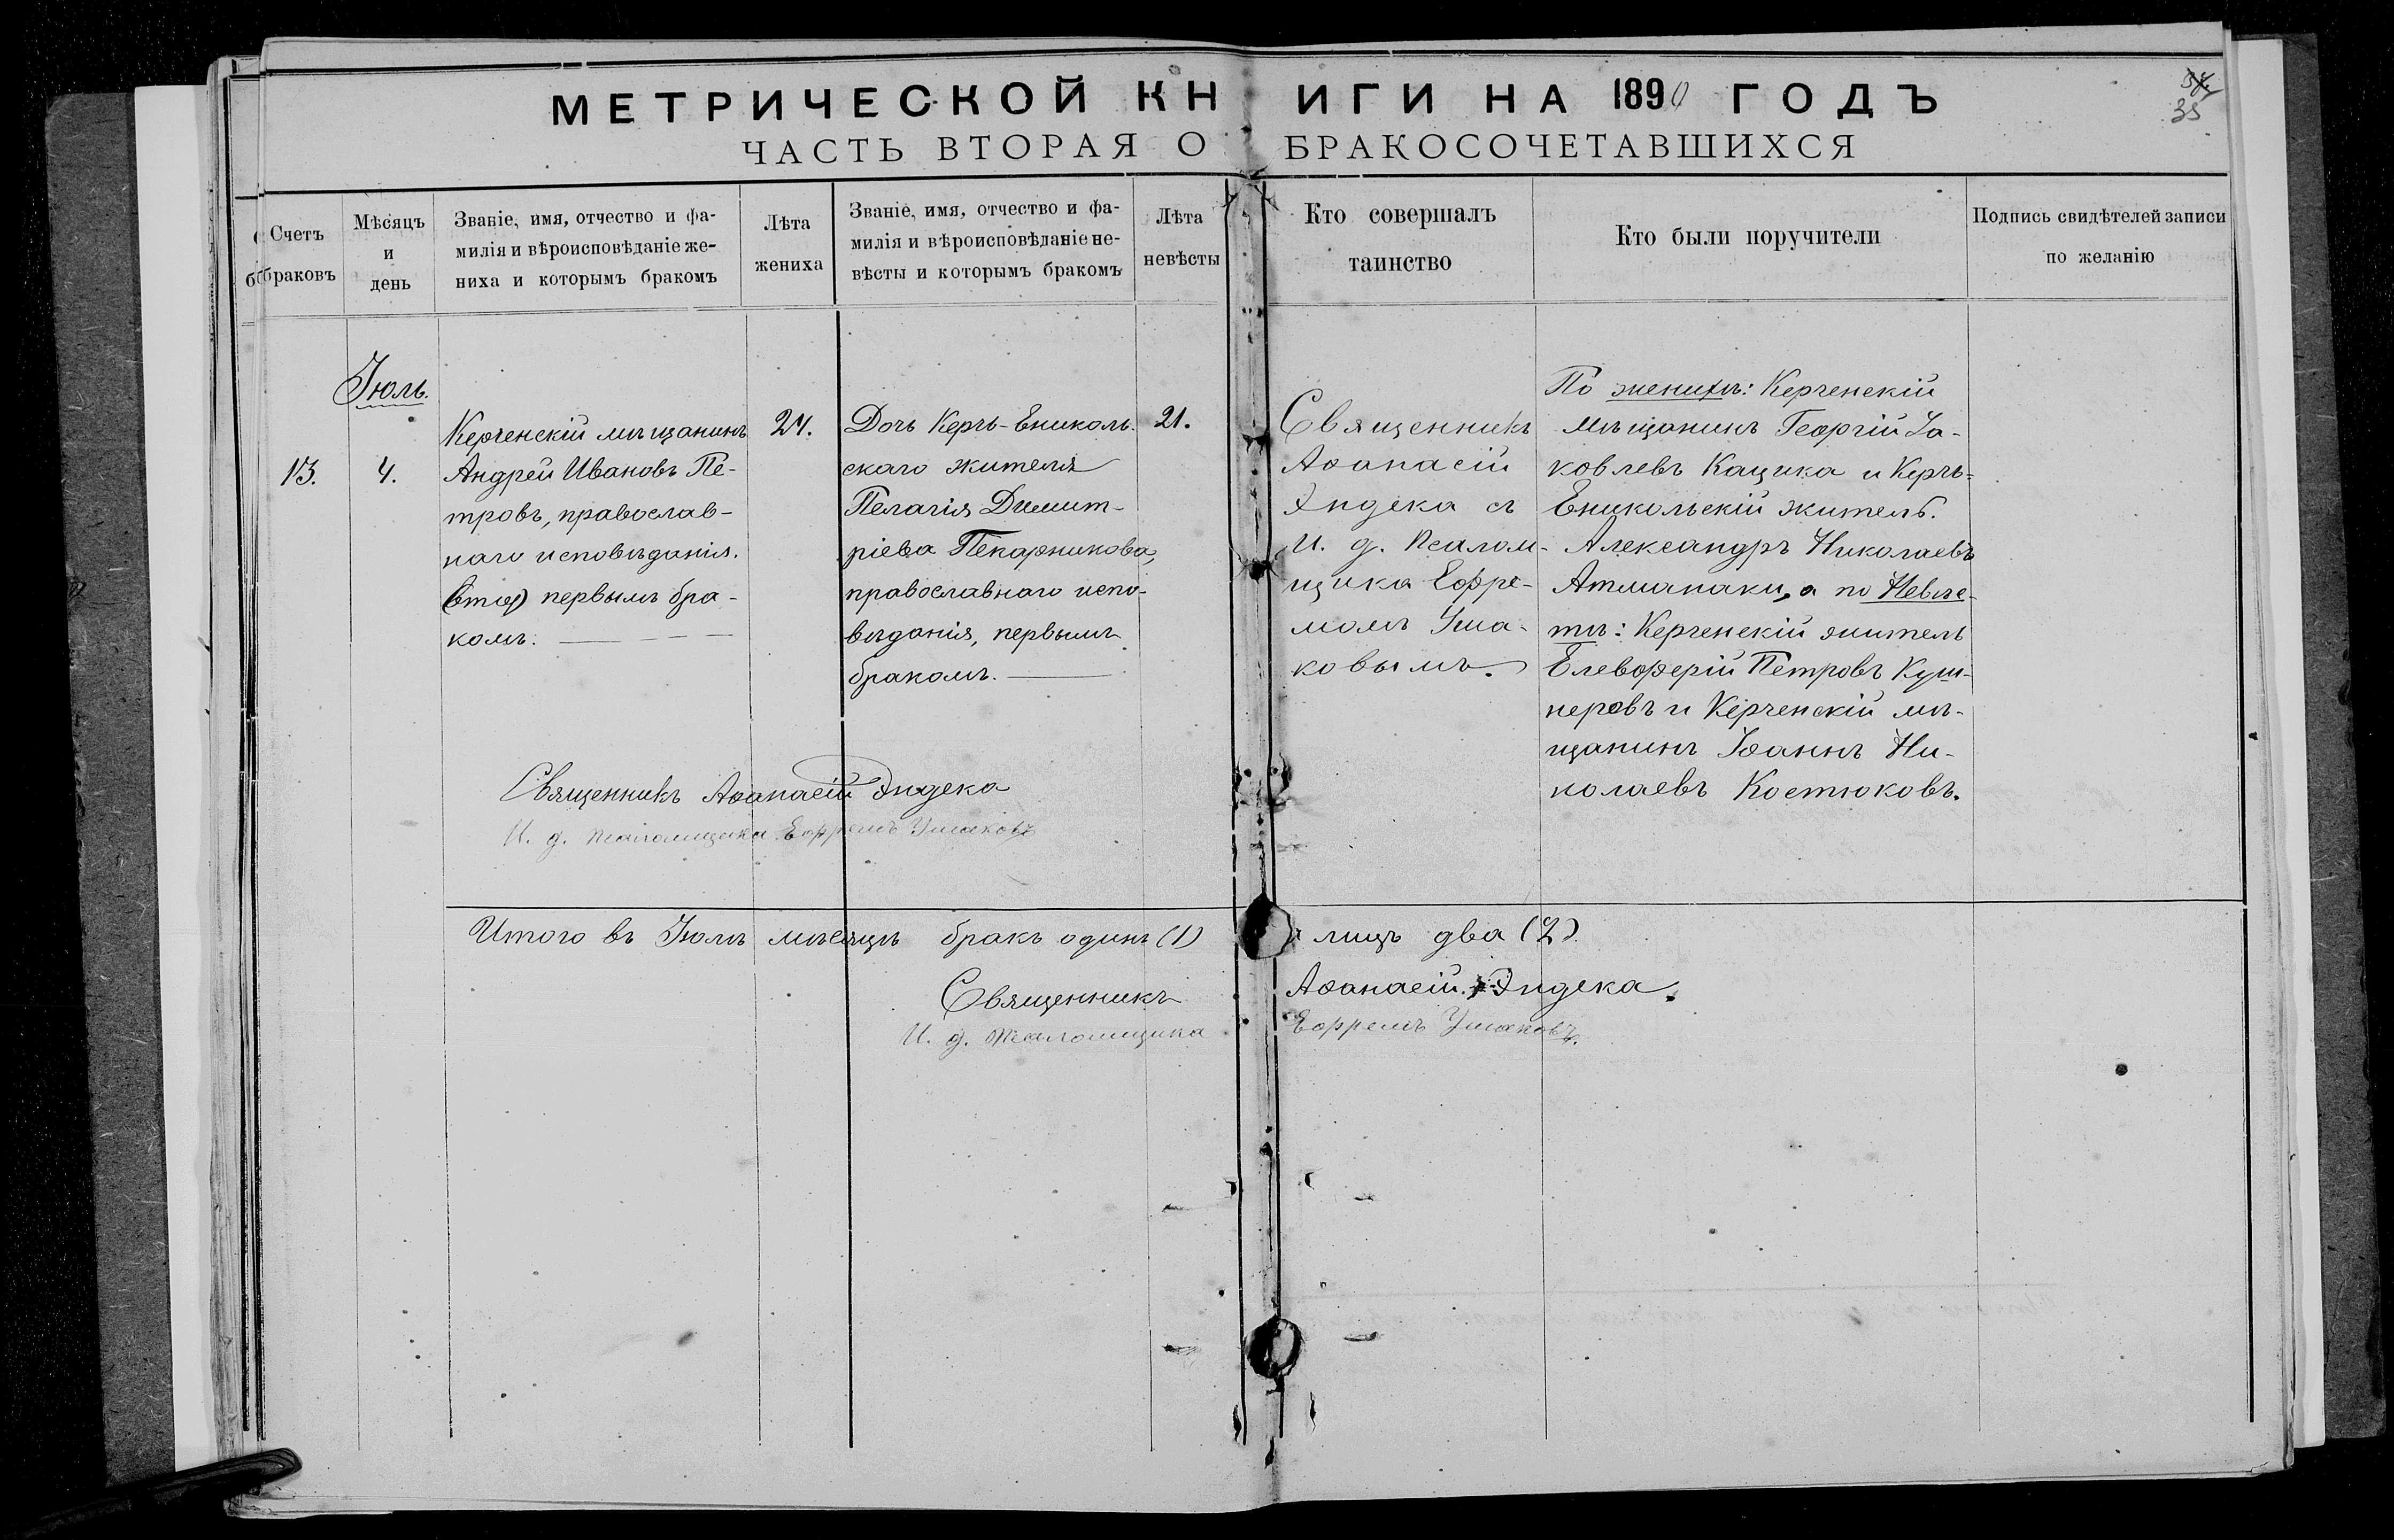 МЕТРИЧЕСКОЙ КНИГИ НА 1890 ГОДЪ
35
ЧАСТЬ ВТОРАЯ О БРАКОСОЧЕТАВШИХСЯ
Счетъ
браковъ
Мѣсяцъ
и
день
Званіе, имя, отчество и фа-
милія и вѣроисповѣданіе же-
ниха и которымъ бракомъ
Лѣта
жениха
Званіе, имя, отчество и фа-
милія и вѣроисповѣданіе не-
вѣсты и которымъ бракомъ
Лѣта
невѣсты
Кто совершалъ
таинство
Кто были поручители
Подпись свидѣтелей записи
по желанію
13.
Іюль.
4.
Керченскій мѣщанинъ
Андрей Ивановъ Пе-
тровъ, православ-
наго исповѣданія.
первымъ бра-
комъ.
24.
Дочь Керчь-Ениколь.
скаго жителя
Пелагія Димит-
ріева Пекарникова,
православнаго испо-
вѣданія, первымъ
бракомъ.
21.
Священникъ
Аѳанасій
Эндека съ
И. д. Псалом-
щика Ефре-
момъ Уша-
ковымъ.
По женихѣ: Керченскій
мѣщанинъ Георгій Іа-
ковлевъ Кацика и Керчь-
Еникольскій житель.
Александръ Николаевъ
Атманаки, а по Невѣс-
тѣ: Керченскій житель
Елевферій Петровъ Куш-
неровъ и Керченскій мѣ-
щанинъ Іоаннъ Ни-
колаевъ Костюковъ.
Священникъ Аѳанасій Эндека
И. д. псаломщика Ефремъ Ушаковъ
Итого въ Іюлѣ мѣсяцѣ бракъ одинъ (1) лицъ два (2).
Священникъ Аѳанасій Эндека.
И. д. псаломщика Ефремъ Ушаковъ.